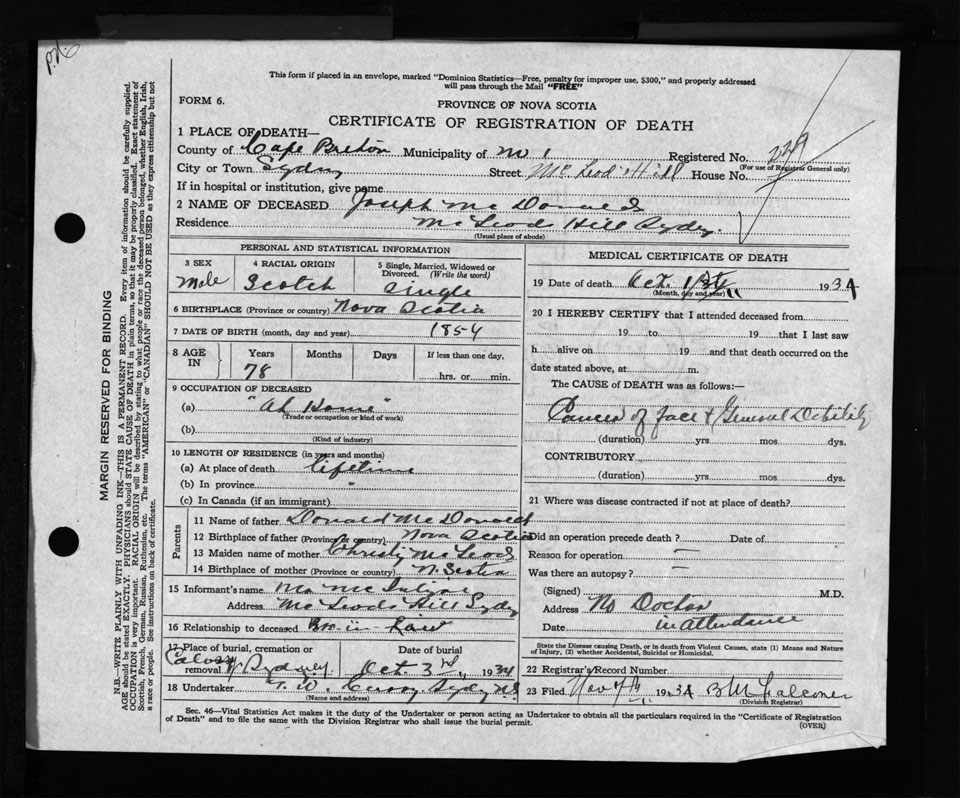 P.N.
This form if placed in an envelope, marked "Dominion Statistics—Free, penalty for improper use, $300," and properly addressed
will pass through the Mail "FREE"
FORM 6.
PROVINCE OF NOVA SCOTIA
CERTIFICATE OF REGISTRATION OF DEATH
1 PLACE OF DEATH—
County of Cape Breton Municipality of No 1 Registered No. 229
(For use of Registrar General only)
City or Town Sydney Street McLeod's Hill House No.
If in hospital or institution, give name
2 NAME OF DECEASED Joseph McDonald
Residence McLeods Hill Sydney.
(Usual place of abode)
PERSONAL AND STATISTICAL INFORMATION
3 SEX Male
4 RACIAL ORIGIN Scotch
5 Single, Married, Widowed or Divorced. (Write the word) Single
6 BIRTHPLACE (Province or country) Nova Scotia
7 DATE OF BIRTH (month, day and year) 1854
8 AGE IN Years 78 Months Days If less than one day. hrs. or min.
9 OCCUPATION OF DECEASED
(a) "At Home"
(Trade or occupation or kind of work)
(b)
(Kind of industry)
10 LENGTH OF RESIDENCE (in years and months)
(a) At place of death lifetime
(b) In province "
(c) In Canada (if an immigrant)
Parents
11 Name of father Donald McDonald
12 Birthplace of father (Province or country) Nova Scotia
13 Maiden name of mother Christy McLeod
14 Birthplace of mother (Province or country) N. Scotia
15 Informant's name
Address McLeods Hill Sydney
16 Relationship to deceased Bro-in-Law
17 Place of burial, cremation or removal Sydney
Date of burial Oct. 3rd, 1934
18 Undertaker Sydney
(Name and address)
MEDICAL CERTIFICATE OF DEATH
19 Date of death Oct. 1st 1934
(Month, day and year)
20 I HEREBY CERTIFY that I attended deceased from
19 to 19 that I last saw
h alive on 19 and that death occurred on the
date stated above, at m.
The CAUSE of DEATH was as follows:—
Cancer of face & General Debility
(duration) yrs. mos. dys.
CONTRIBUTORY
(duration) yrs. mos. dys.
21 Where was disease contracted if not at place of death?
Did an operation precede death ? Date of
Reason for operation —
Was there an autopsy? —
(Signed) M.D.
Address No Doctor
Date in attendance
State the Disease causing Death, or in death from Violent Causes, state (1) Means and Nature
of Injury, (2) whether Accidental, Suicidal or Homicidal.
22 Registrar's Record Number
23 Filed Nov 7th 1934 B M Falconer
(Division Registrar)
Sec. 46—Vital Statistics Act makes it the duty of the Undertaker or person acting as Undertaker to obtain all the particulars required in the "Certificate of Registration
of Death" and to file the same with the Division Registrar who shall issue the burial permit.
(OVER)
MARGIN RESERVED FOR BINDING
N.B.—WRITE PLAINLY WITH UNFADING INK—THIS IS A PERMANENT RECORD. Every item of information should be carefully supplied.
AGE should be stated EXACTLY. PHYSICIANS should STATE CAUSE OF DEATH in plain terms, so that it may be properly classified. Exact statement of
OCCUPATION is very important. RACIAL ORIGIN will be described by stating to what people or race the deceased person belonged, whether English, Irish,
Scottish, French, German, Russian, Ruthenian, etc. The terms "AMERICAN" or "CANADIAN" SHOULD NOT BE USED as they express citizenship but not
a race or people. See instructions on back of certificate.